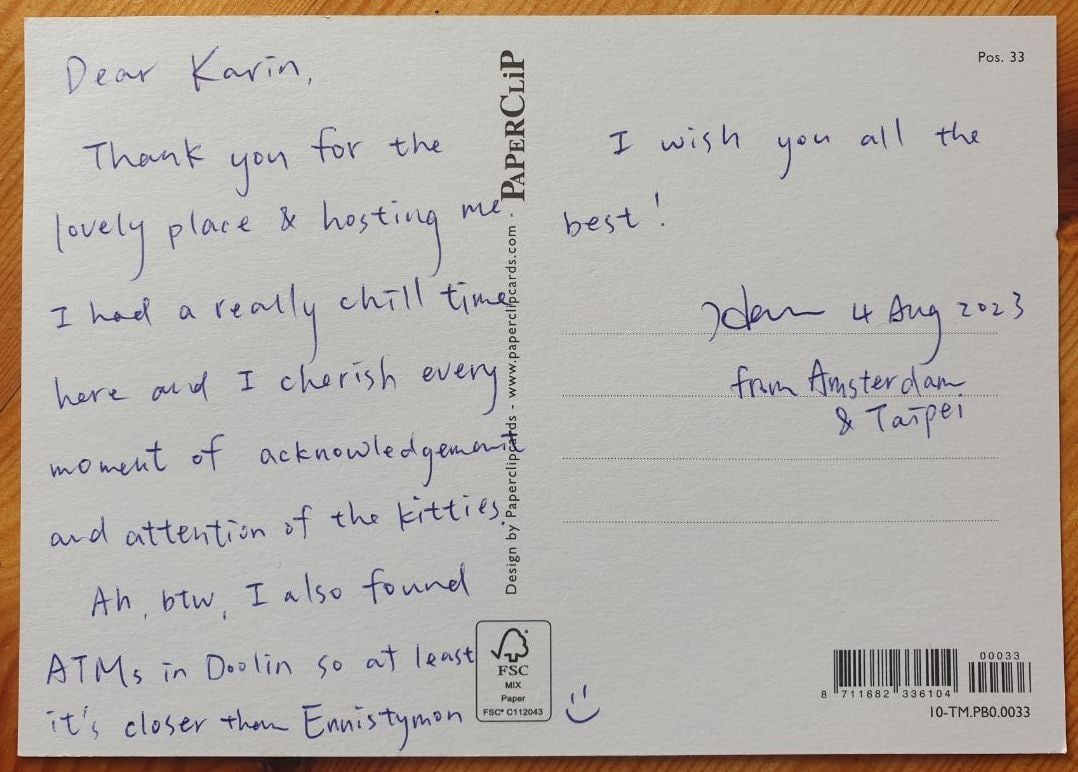 Dear Karin,
Thank you for the
lovely place & hosting me.
I had a really chill time
here and I cherish every
moment of acknowledgement
and attention of the kitties.
Ah, btw, I also found
ATMs in Doolin so at least
it's closer than Ennistymon
PAPERCLiP
Design by Paperclipcards - www.paperclipcards.com -
FSC
MIX
Paper
FSC® C112043
Pos. 33
I wish you all the
best!
4 Aug 2023
from Amsterdam
& Taipei
00033
8 711682 336104
10-TM.PB0.0033